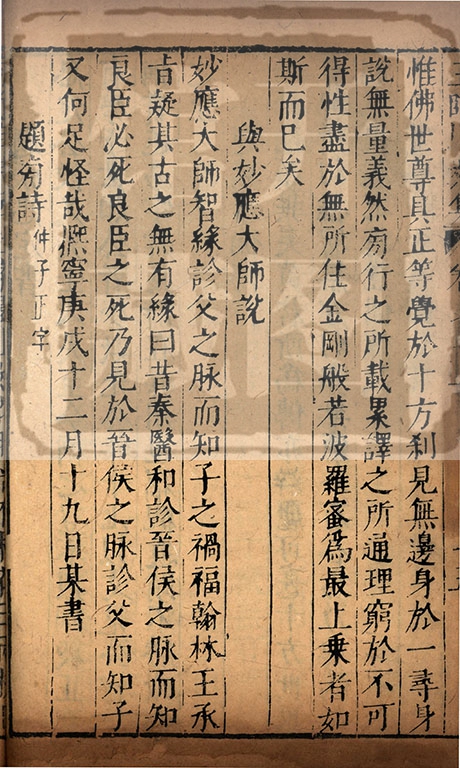 惟佛世尊具正等覺於十方刹見無邊身於一尋身
說無量義然旁行之所載累譯之所通理窮於不可
得性盡於無所住金剛般若波羅蜜爲最上乗者如
斯而已矣
與妙應大師說
妙應大師智緣診父之脉而知子之禍福翰林王承
旨疑其古之無有緣曰昔秦醫和診晉侯之脉而知
良臣必死良臣之死乃見於晉侯之脉診父而知子
又何足怪哉熈寧庚戌十二月十九日某書
題旁詩仲子正字